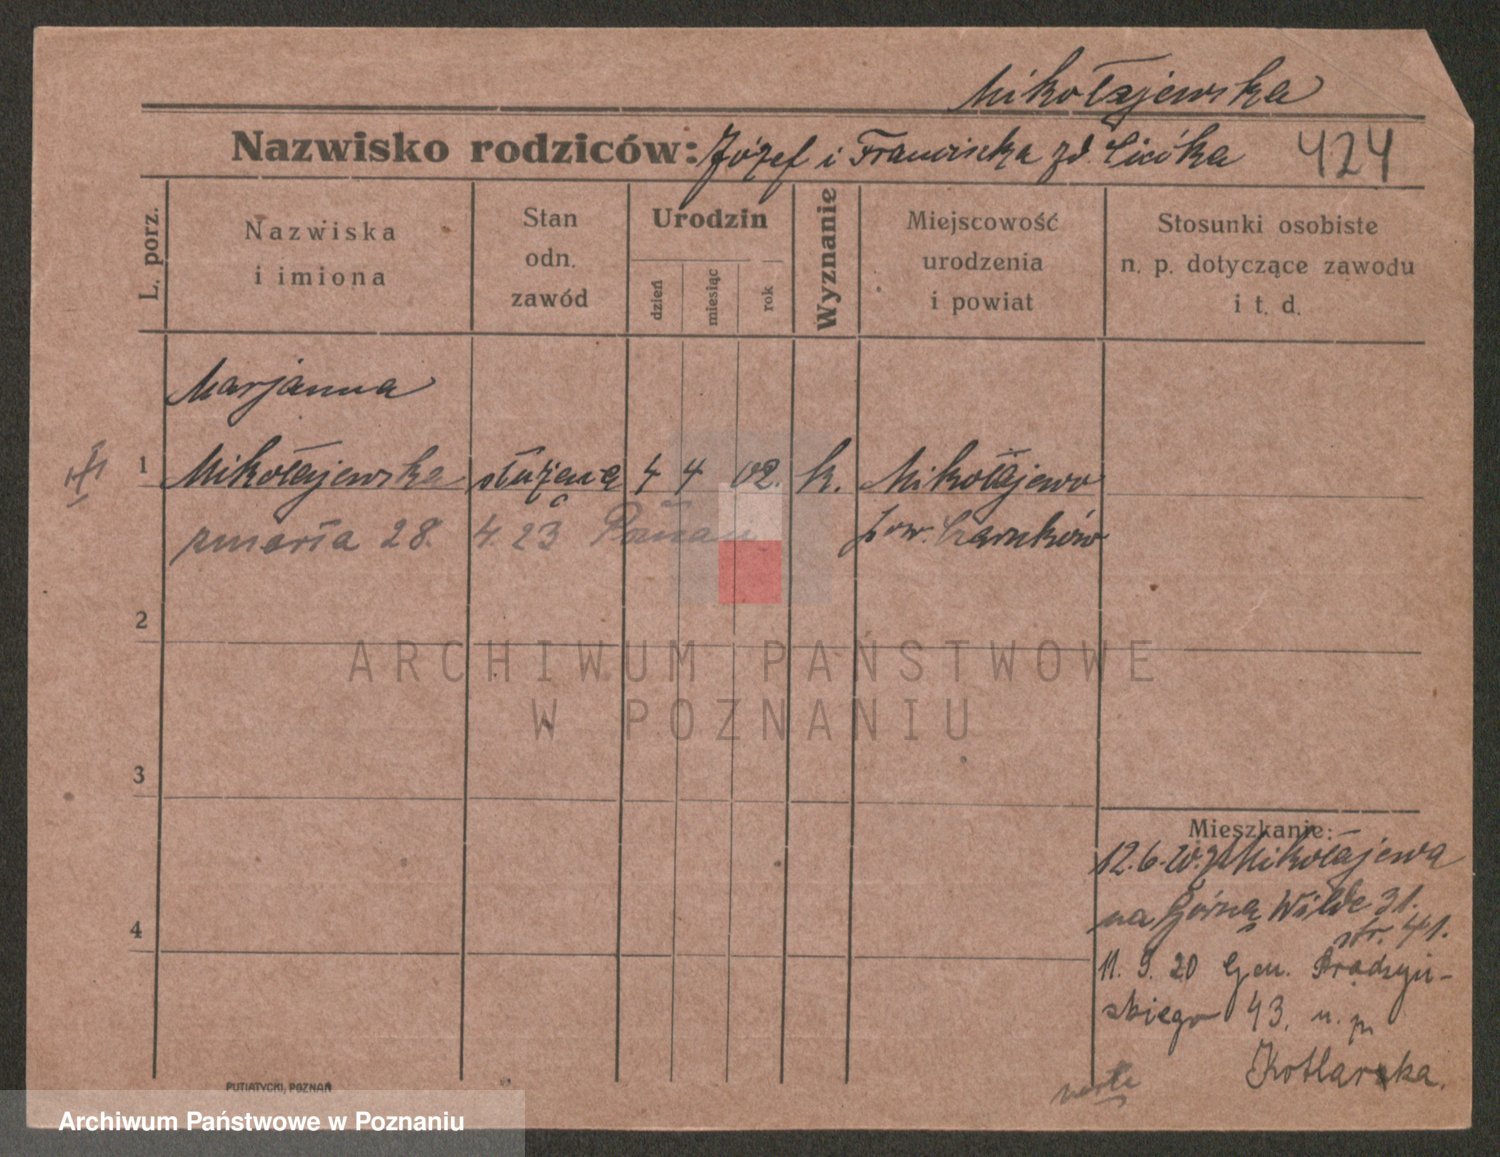 Mikołajewska
Nazwisko rodziców: Józef i Franciszka zd. Cicóka 424
L. porz.
Nazwiska
i imiona
Stan
odn.
zawód
Urodzin
dzień
miesiąc
rok
Wyznanie
Miejscowość
urodzenia
i powiat
Stosunki osobiste
n. p. dotyczące zawodu
i t. d.
Marjanna
1 Mikołajewska służąca 4 4 02. k. Mikołajewo
zmarła 28. 4. 23 Poznań pow. Czarnków
2
ARCHIWUM PAŃSTWOWE
W POZNANIU
3
Mieszkanie:
12.6.20. z Mikołajewa
4
na Górną Wildę 31.
str. 41.
11. 9. 20 Gen. Prądzyń-
skiego 43. u. p.
Kotlarska.
verte
PUTIATYCKI, POZNAŃ
Archiwum Państwowe w Poznaniu